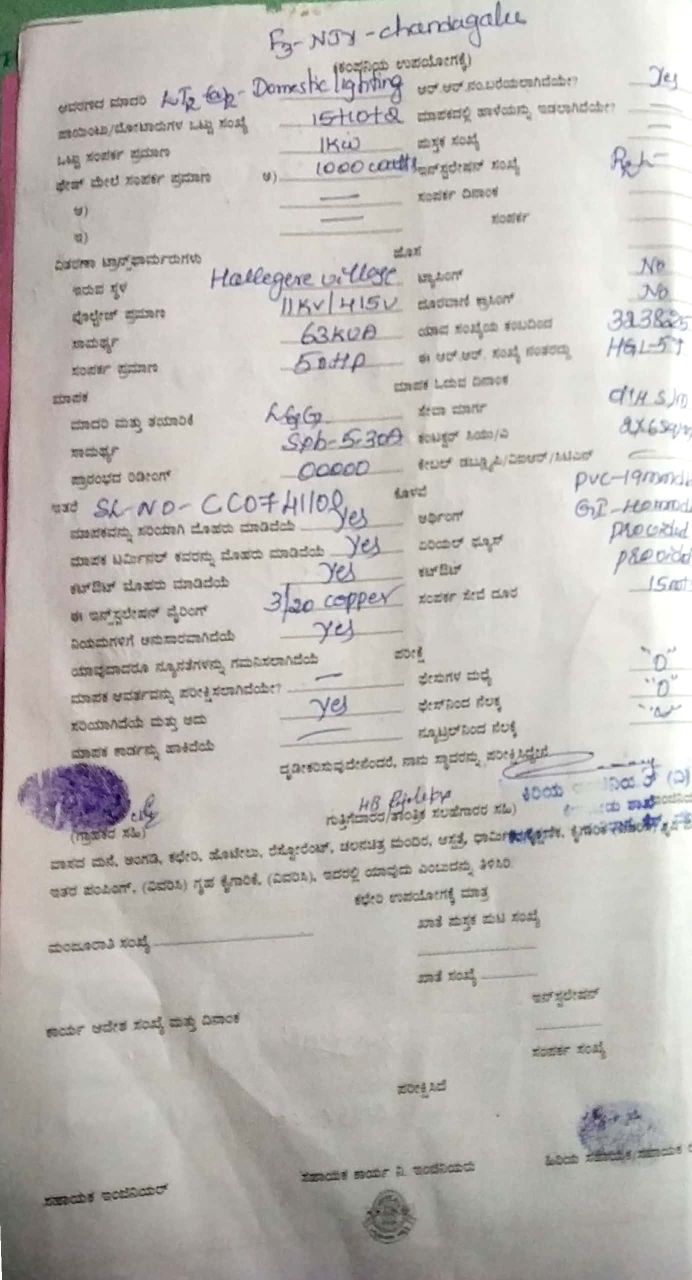 F3-NJY-chandagalu
(ಕಂಪನಿಯ ಉಪಯೋಗಕ್ಕೆ)
ಆವರಣದ ಮಾದರಿ LT2 Domestic lighting ಆರ್.ಆರ್.ನಂ.ಬರೆಯಲಾಗಿದೆಯೇ? Yes
ಪಾಯಿಂಟು/ಮೋಟಾರುಗಳ ಒಟ್ಟು ಸಂಖ್ಯೆ ಮಾಪಕದಲ್ಲಿ ಹಾಳೆಯನ್ನು ಇಡಲಾಗಿದೆಯೇ? —
ಒಟ್ಟು ಸಂಪರ್ಕ ಪ್ರಮಾಣ 1KW ಪುಸ್ತಕ ಸಂಖ್ಯೆ —
ಫೇಸ್ ಮೇಲೆ ಸಂಪರ್ಕ ಪ್ರಮಾಣ ಅ) 1000 watts ಇನ್‌ಸ್ಟಲೇಷನ್ ಸಂಖ್ಯೆ
ಆ) — ಸಂಪರ್ಕ ದಿನಾಂಕ
ಇ) — ಸಂಪರ್ಕ
ವಿತರಣಾ ಟ್ರಾನ್ಸ್‌ಫಾರ್ಮರುಗಳು ಹೊಸ
ಇರುವ ಸ್ಥಳ Hallegere village ಟ್ಯಾಸಿಂಗ್ No
ವೊಲ್ಟೇಜ್ ಪ್ರಮಾಣ 11KV/415V ದೂರವಾಣಿ ಕ್ರಾಸಿಂಗ್ No
ಸಾಮರ್ಥ್ಯ 63KVA ಯಾವ ಸಂಖ್ಯೆಯ ಕಂಬದಿಂದ 323825
ಸಂಪರ್ಕ ಪ್ರಮಾಣ 50HP ಈ ಆರ್.ಆರ್. ಸಂಖ್ಯೆ ನಂತರದ್ದು
ಮಾಪಕ ಮಾಪಕ ಓದುವ ದಿನಾಂಕ
ಮಾದರಿ ಮತ್ತು ತಯಾರಿಕೆ L&G ಸೇವಾ ಮಾರ್ಗ
ಸಾಮರ್ಥ್ಯ 5-30A ಕಂಟಕ್ಟರ್ ಸಿಯು/ಎ
ಪ್ರಾರಂಭದ ರಿಡೀಂಗ್ 00000 ಕೇಬಲ್ ಡಬ್ಲ್ಯೂಪಿ/ವಿಐಆರ್/ಸಿಟಿಎಸ್ —
ಇತರೆ SL-NO- CC0741108 ಕೊಳವೆ
ಮಾಪಕವನ್ನು ಸರಿಯಾಗಿ ಮೊಹರು ಮಾಡಿದೆಯೆ Yes ಅರ್ಥಿಂಗ್
ಮಾಪಕ ಟರ್ಮಿನಲ್ ಕವರನ್ನು ಮೊಹರು ಮಾಡಿದೆಯೆ Yes ಏರಿಯಲ್ ಫ್ಯೂಸ್ provided
ಕಟ್‌ಔಟ್ ಮೊಹರು ಮಾಡಿದೆಯೆ Yes ಕಟ್‌ಔಟ್ provided
ಈ ಇನ್‌ಸ್ಟಲೇಷನ್ ವೈರಿಂಗ್ 3/20 copper ಸಂಪರ್ಕ ಸೇವೆ ದೂರ
ನಿಯಮಗಳಿಗೆ ಅನುಸಾರವಾಗಿದೆಯೆ Yes
ಯಾವುದಾದರೂ ನ್ಯೂನತೆಗಳನ್ನು ಗಮನಿಸಲಾಗಿದೆಯೆ — ಪರೀಕ್ಷೆ
ಮಾಪಕ ಆವರ್ತವನ್ನು ಪರೀಕ್ಷಿಸಲಾಗಿದೆಯೇ? ಫೇಸುಗಳ ಮಧ್ಯೆ "0"
ಸರಿಯಾಗಿದೆಯೆ ಮತ್ತು ಅದು Yes ಫೇಸ್‌ನಿಂದ ನೆಲಕ್ಕೆ "0"
ಮಾಪಕ ಕಾರ್ಡನ್ನು ಹಾಕಿದೆಯೆ — ನ್ಯೂಟ್ರಲ್‌ನಿಂದ ನೆಲಕ್ಕೆ
ದೃಢೀಕರಿಸುವುದೇನೆಂದರೆ, ನಾನು ಸ್ಥಾವರನ್ನು ಪರೀಕ್ಷಿಸಿದ್ದೇನೆ
ಕಿರಿಯ
(ಗ್ರಾಹಕರ ಸಹಿ) ಗುತ್ತಿಗೆದಾರರ/ತಾಂತ್ರಿಕ ಸಲಹೆಗಾರರ ಸಹಿ)
ವಾಸದ ಮನೆ, ಅಂಗಡಿ, ಕಛೇರಿ, ಹೊಟೇಲು, ರೆಸ್ಟೋರೆಂಟ್, ಚಲನಚಿತ್ರ ಮಂದಿರ, ಆಸ್ಪತ್ರೆ,
ಇತರ ಪಂಪಿಂಗ್, (ವಿವರಿಸಿ) ಗೃಹ ಕೈಗಾರಿಕೆ, (ವಿವರಿಸಿ), ಇದರಲ್ಲಿ ಯಾವುದು ಎಂಬುದನ್ನು ತಿಳಿಸಿರಿ
ಕಛೇರಿ ಉಪಯೋಗಕ್ಕೆ ಮಾತ್ರ
ಮಂಜೂರಾತಿ ಸಂಖ್ಯೆ ಖಾತೆ ಪುಸ್ತಕ ಪುಟ ಸಂಖ್ಯೆ
ಖಾತೆ ಸಂಖ್ಯೆ
ಇನ್‌ಸ್ಟಲೇಷನ್
ಕಾರ್ಯ ಆದೇಶ ಸಂಖ್ಯೆ ಮತ್ತು ದಿನಾಂಕ
ಸಂಪರ್ಕ ಸಂಖ್ಯೆ
ಪರೀಕ್ಷಿಸಿದೆ
ಸಹಾಯಕ ಇಂಜಿನಿಯರ್ ಸಹಾಯಕ ಕಾರ್ಯ ನಿ. ಇಂಜಿನಿಯರು ಹಿರಿಯ ಸಹಾಯಕ/ಸಹಾಯಕ